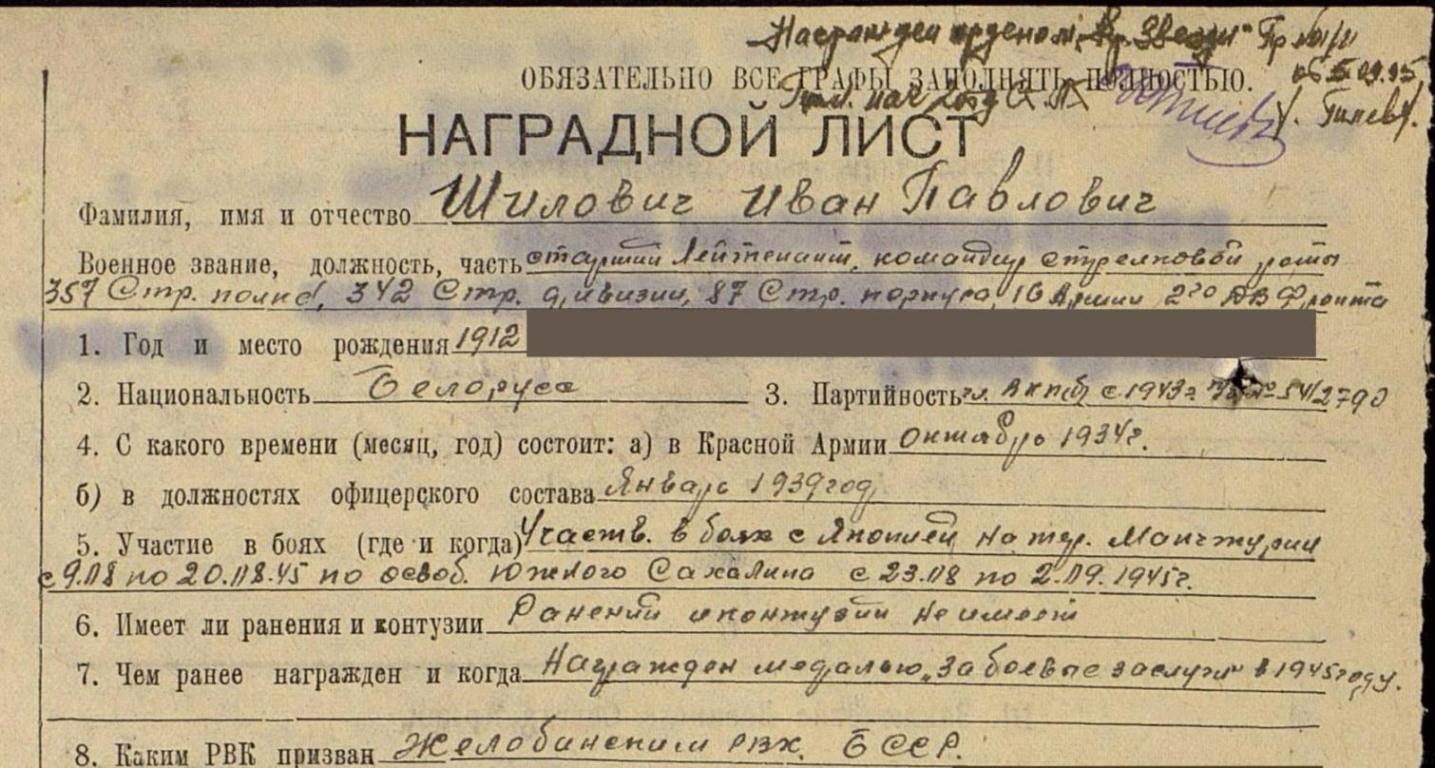 Награжден орденом „Кр. Звезды“
ОБЯЗАТЕЛЬНО ВСЕ ГРАФЫ ЗАПОЛНЯТЬ ПОЛНОСТЬЮ.
НАГРАДНОЙ ЛИСТ
Фамилия, имя и отчество Шилович Иван Павлович
Военное звание, должность, часть старший лейтенант, командир стрелковой роты
357 Стр. полка, 342 Стр. дивизии, 87 Стр. корпуса, 16 Армии 2го ДВ Фронта
1. Год и место рождения 1912
2. Национальность Белорус 3. Партийность чл. ВКП(б) с 1943г
4. С какого времени (месяц, год) состоит: а) в Красной Армии октябрь 1934г.
б) в должностях офицерского состава Январь 1939 год
5. Участие в боях (где и когда) Участв. в боях с Японией на тер. Манчжурии
с 9.08 по 20.08.45 по освоб. Южного Сахалина с 23.08 по 2.09.1945г.
6. Имеет ли ранения и контузии Ранений и контузии не имеет
7. Чем ранее награжден и когда Награжден медалью „За боевые заслуги“ в 1945 году.
8. Каким РВК призван РВК. БССР.